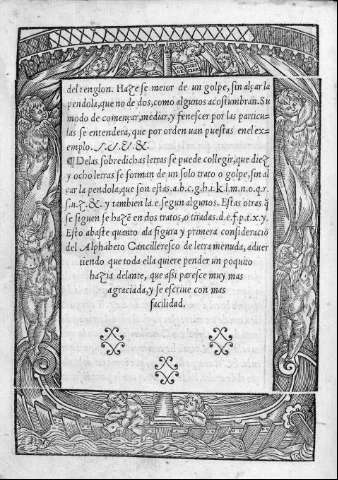 del renglon. Haze se mejor de un golpe, sin alçar la
pendola, que no de dos, como algunos acostumbran. Su
modo de començar, mediar, y fenescer por las particu-
las se entendera, que por orden van puestas en el ex-
emplo.
¶ De las sobredichas letras se puede collegir, que diez
y ocho letras se forman de un solo trato o golpe, sin al
çar la pendola, que son estas. a.b.c.g.h.i.k.l.m.n.o.q.r.
s.u.z.&. y tambien la e. segun algunos. Estas otras q̃
se siguen se hazẽ en dos tratos, o tiradas. d.e.f.p.t.x.y.
Esto abaste quanto ala figura y primera consideraciõ
del Alphabeto Cancilleresco de letra menuda, aduer
tiendo que toda ella quiere pender un poquito
hazia delante, que assi paresce muy mas
agraciada, y se escriue con mas
facilidad.